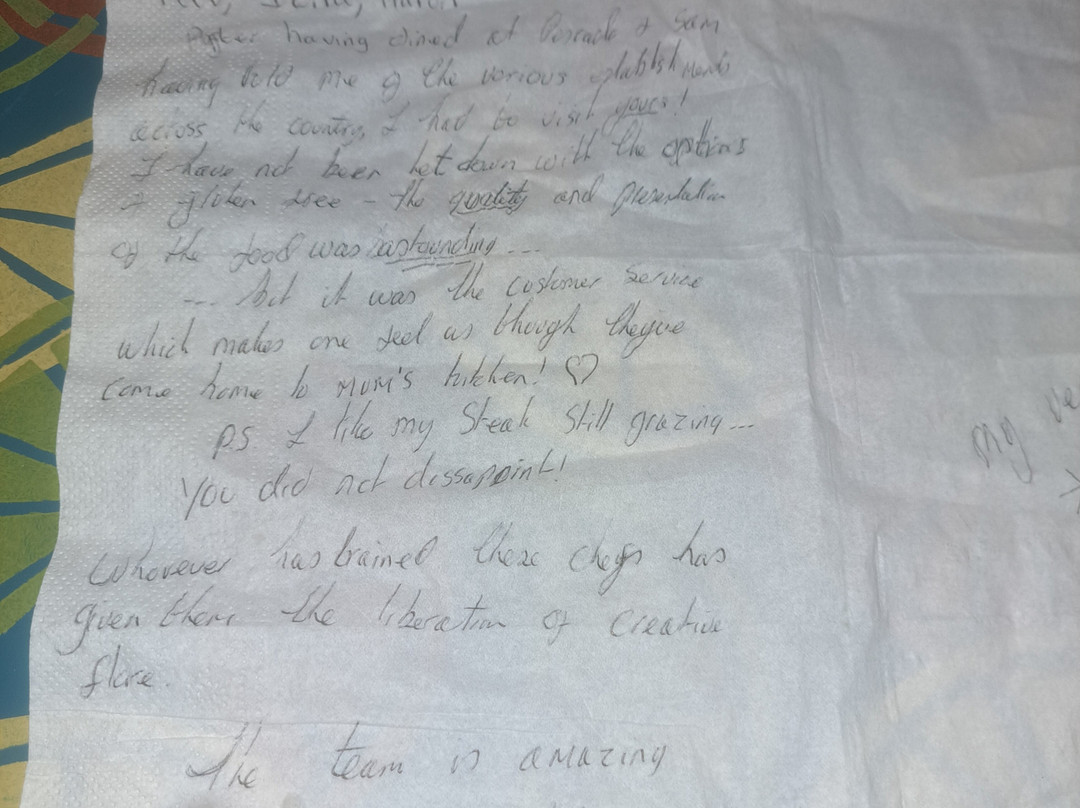 After having dined at & Sam
having told me of the various establishments
across the country, I had to visit yours!
I have not been let down with the options
I gluten free - the quality and presentation
of the food was astounding ...
... but it was the customer service
which makes one feel as though they've
come home to MUM'S kitchen! ♡
P.S I like my steak still grazing ...
You did not dissapoint!
Whoever has trained these chefs has
given them the liberation of creative
flare.
The team is amazing
my